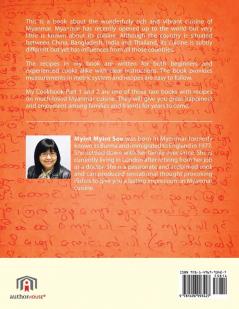 This is a book about the wonderfully rich and vibrant cuisine of
Myanmar. Myanmar has recently opened up to the world but very
little is known about its cuisine. Although the country is situated
between China, Bangladesh, India and Thailand, its cuisine is subtly
different but yet has influences from all of those countries.
The recipes in my book are written for both beginners and
experienced cooks alike with clear instructions. The book provides
measurements in metric system and recipes are easy to follow.
My Cookbook Part 1 and 2 are one of those rare books with recipes
on much-loved Myanmar cuisine. They will give you great happiness
and enjoyment among families and friends for years to come.
Myint Myint Soe was born in Myanmar formerly
known as Burma and immigrated to England in 1977.
She settled down with her family ever since. She is
currently living in London after retiring from her job
as a doctor. She is a passionate and acclaimed cook
and can produce sensational thought provoking
dishes to give you a lasting impression in Myanmar
cuisine.
authorHOUSE®